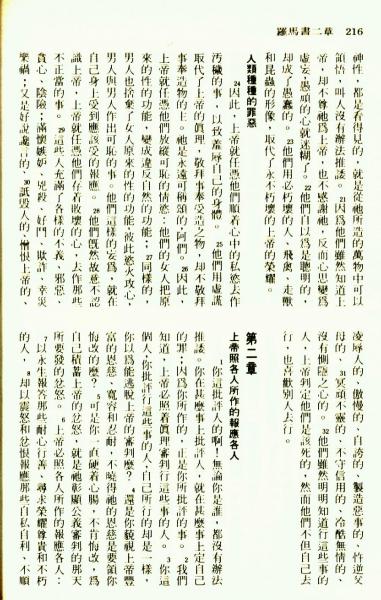 羅馬書二章 216
神性，都是看得見的，就是從祂所造的萬物中可以
領悟，叫人沒有辦法推諉。21因爲他們雖然知道上
帝，却不尊祂爲上帝，也不感謝祂，反而心思變爲
虛妄，愚頑的心就迷糊了。22他們自以爲是聰明的，
却成了愚蠢的。23他們用必朽壞的人、飛禽、走獸
和昆蟲的形像，取代了永不朽壞的上帝的榮耀。
人類種種的罪惡
24因此，上帝就任憑他們順着心中的私慾去作
污穢的事，以致羞辱自己的身體。25他們用虛謊
取代了上帝的眞理，敬拜事奉受造之物，却不敬拜
事奉造物的主。祂是永遠可稱頌的，阿們。26因此，
上帝就任憑他們放縱可恥的情慾：他們的女人把原
來的性的功能，變成違反自然的功能；27同樣的，
男人也捨棄了女人原來的性的功能，彼此慾火攻心，
男人與男人作出可恥的事。他們這樣的妄爲，就在
自己身上受到應該受的報應。28他們旣然故意不認
識上帝，上帝就任憑他們存着敗壞的心，去作那些
不正當的事。29這些人充滿了各樣的不義、邪惡、
貪心、陰險；滿懷嫉妒、兇殺、好鬥、欺詐、幸災
樂禍；又是好說讒言的、30詆毀人的、憎恨上帝的、
凌辱人的、傲慢的、自誇的、製造惡事的、忤逆父
母的、31冥頑不靈的、不守信用的、冷酷無情的、
沒有惻隱之心的。32他們雖然明明知道行這些事的
人，上帝判定他們是該死的，然而他們不但自己去
行，也喜歡別人去行。
第二章
上帝照各人所作的報應各人
1你這批評人的啊！無論你是誰，都沒有辦法
推諉。你在甚麼事上批評人，就在甚麼事上定自己
的罪；因爲你所作的，正是你所批評的事。2我們
知道，上帝必照着眞理審判行這些事的人。3你這
個人，你批評行這些事的人，自己所行的却是一樣，
你以爲能逃脫上帝的審判麼？4還是你藐視上帝豐
富的恩慈、寬容和忍耐，不曉得祂的恩慈是要領你
悔改的麼？5可是你一直硬着心腸，不肯悔改，爲
自己積蓄上帝的忿怒，就是祂彰顯公義審判的那天
所要發的忿怒。6上帝必照各人所作的報應各人：
7以永生報答那些耐心行善、尋求榮耀尊貴和不朽
的人，8却以震怒和忿恨報應那些自私自利、不順